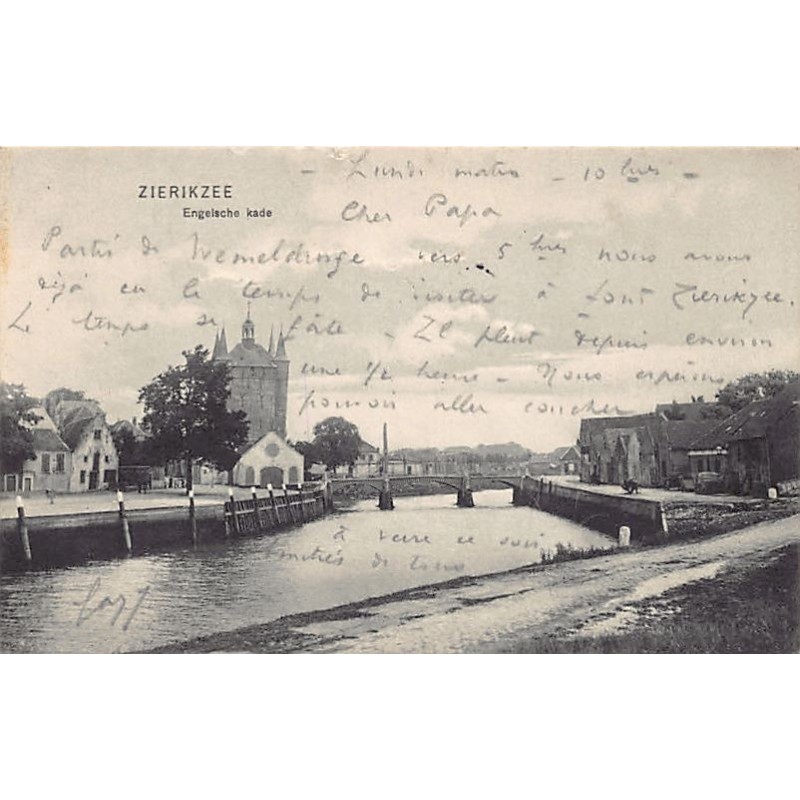 ZIERIKZEE
Engelsche kade
- Lundi matin - 10 hres -
Cher Papa
Partis de Wemeldinge vers 5 hres nous avons
déjà eu le temps de visiter à fond Zierikzee.
Le temps se gâte - Il pleut depuis environ
une 1/2 heure - Nous espérons
pouvoir aller coucher
à Veere ce soir
Amitiés de tous